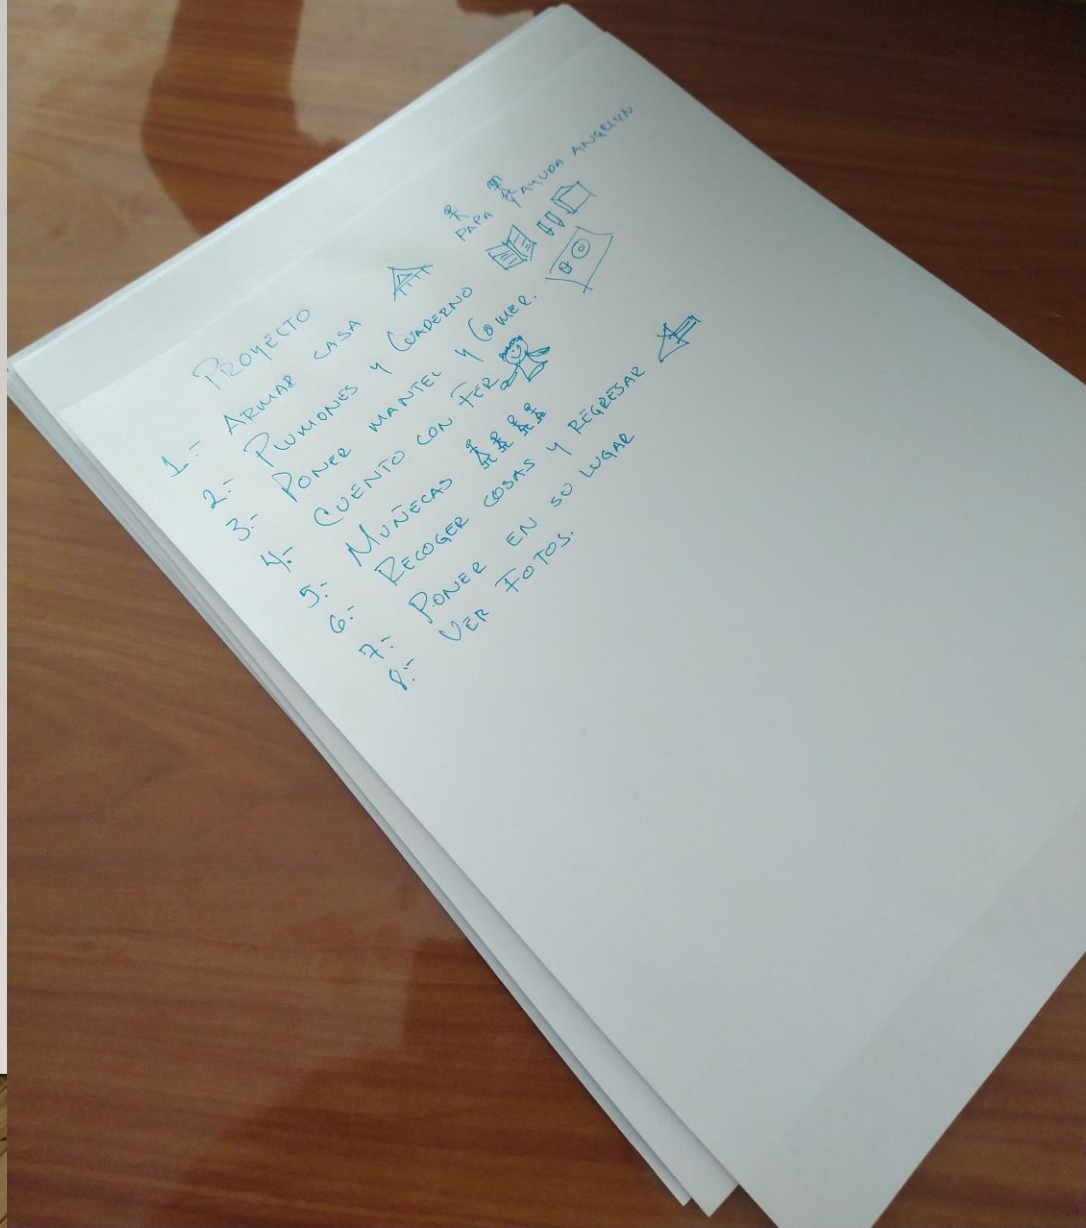 PROYECTO
1.- ARMAR CASA PAPA Y AYUDA ANGELYN
2.- PLUMONES Y CUADERNO
3.- PONER MANTEL Y COMER.
4.- CUENTO CON FER
5.- MUÑECAS
6.- RECOGER COSAS Y REGRESAR
7.- PONER EN SU LUGAR
8.- VER FOTOS.